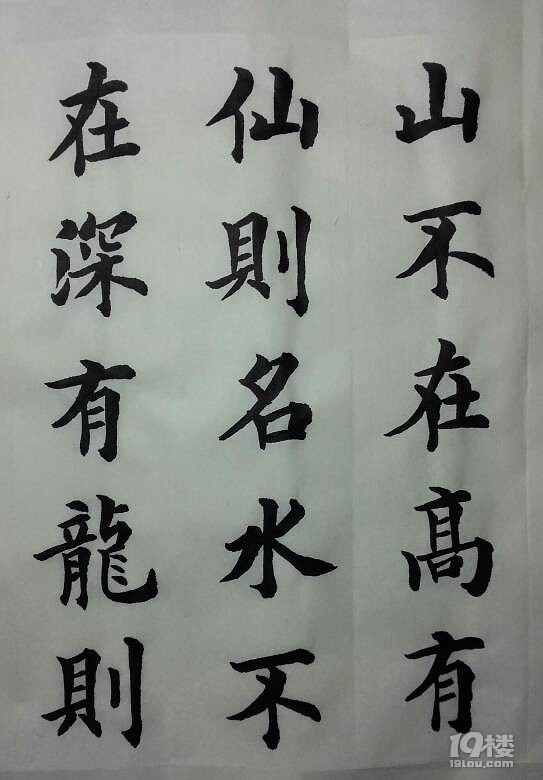 山不在高有
仙則名水不
在深有龍則
19楼
19lou.com